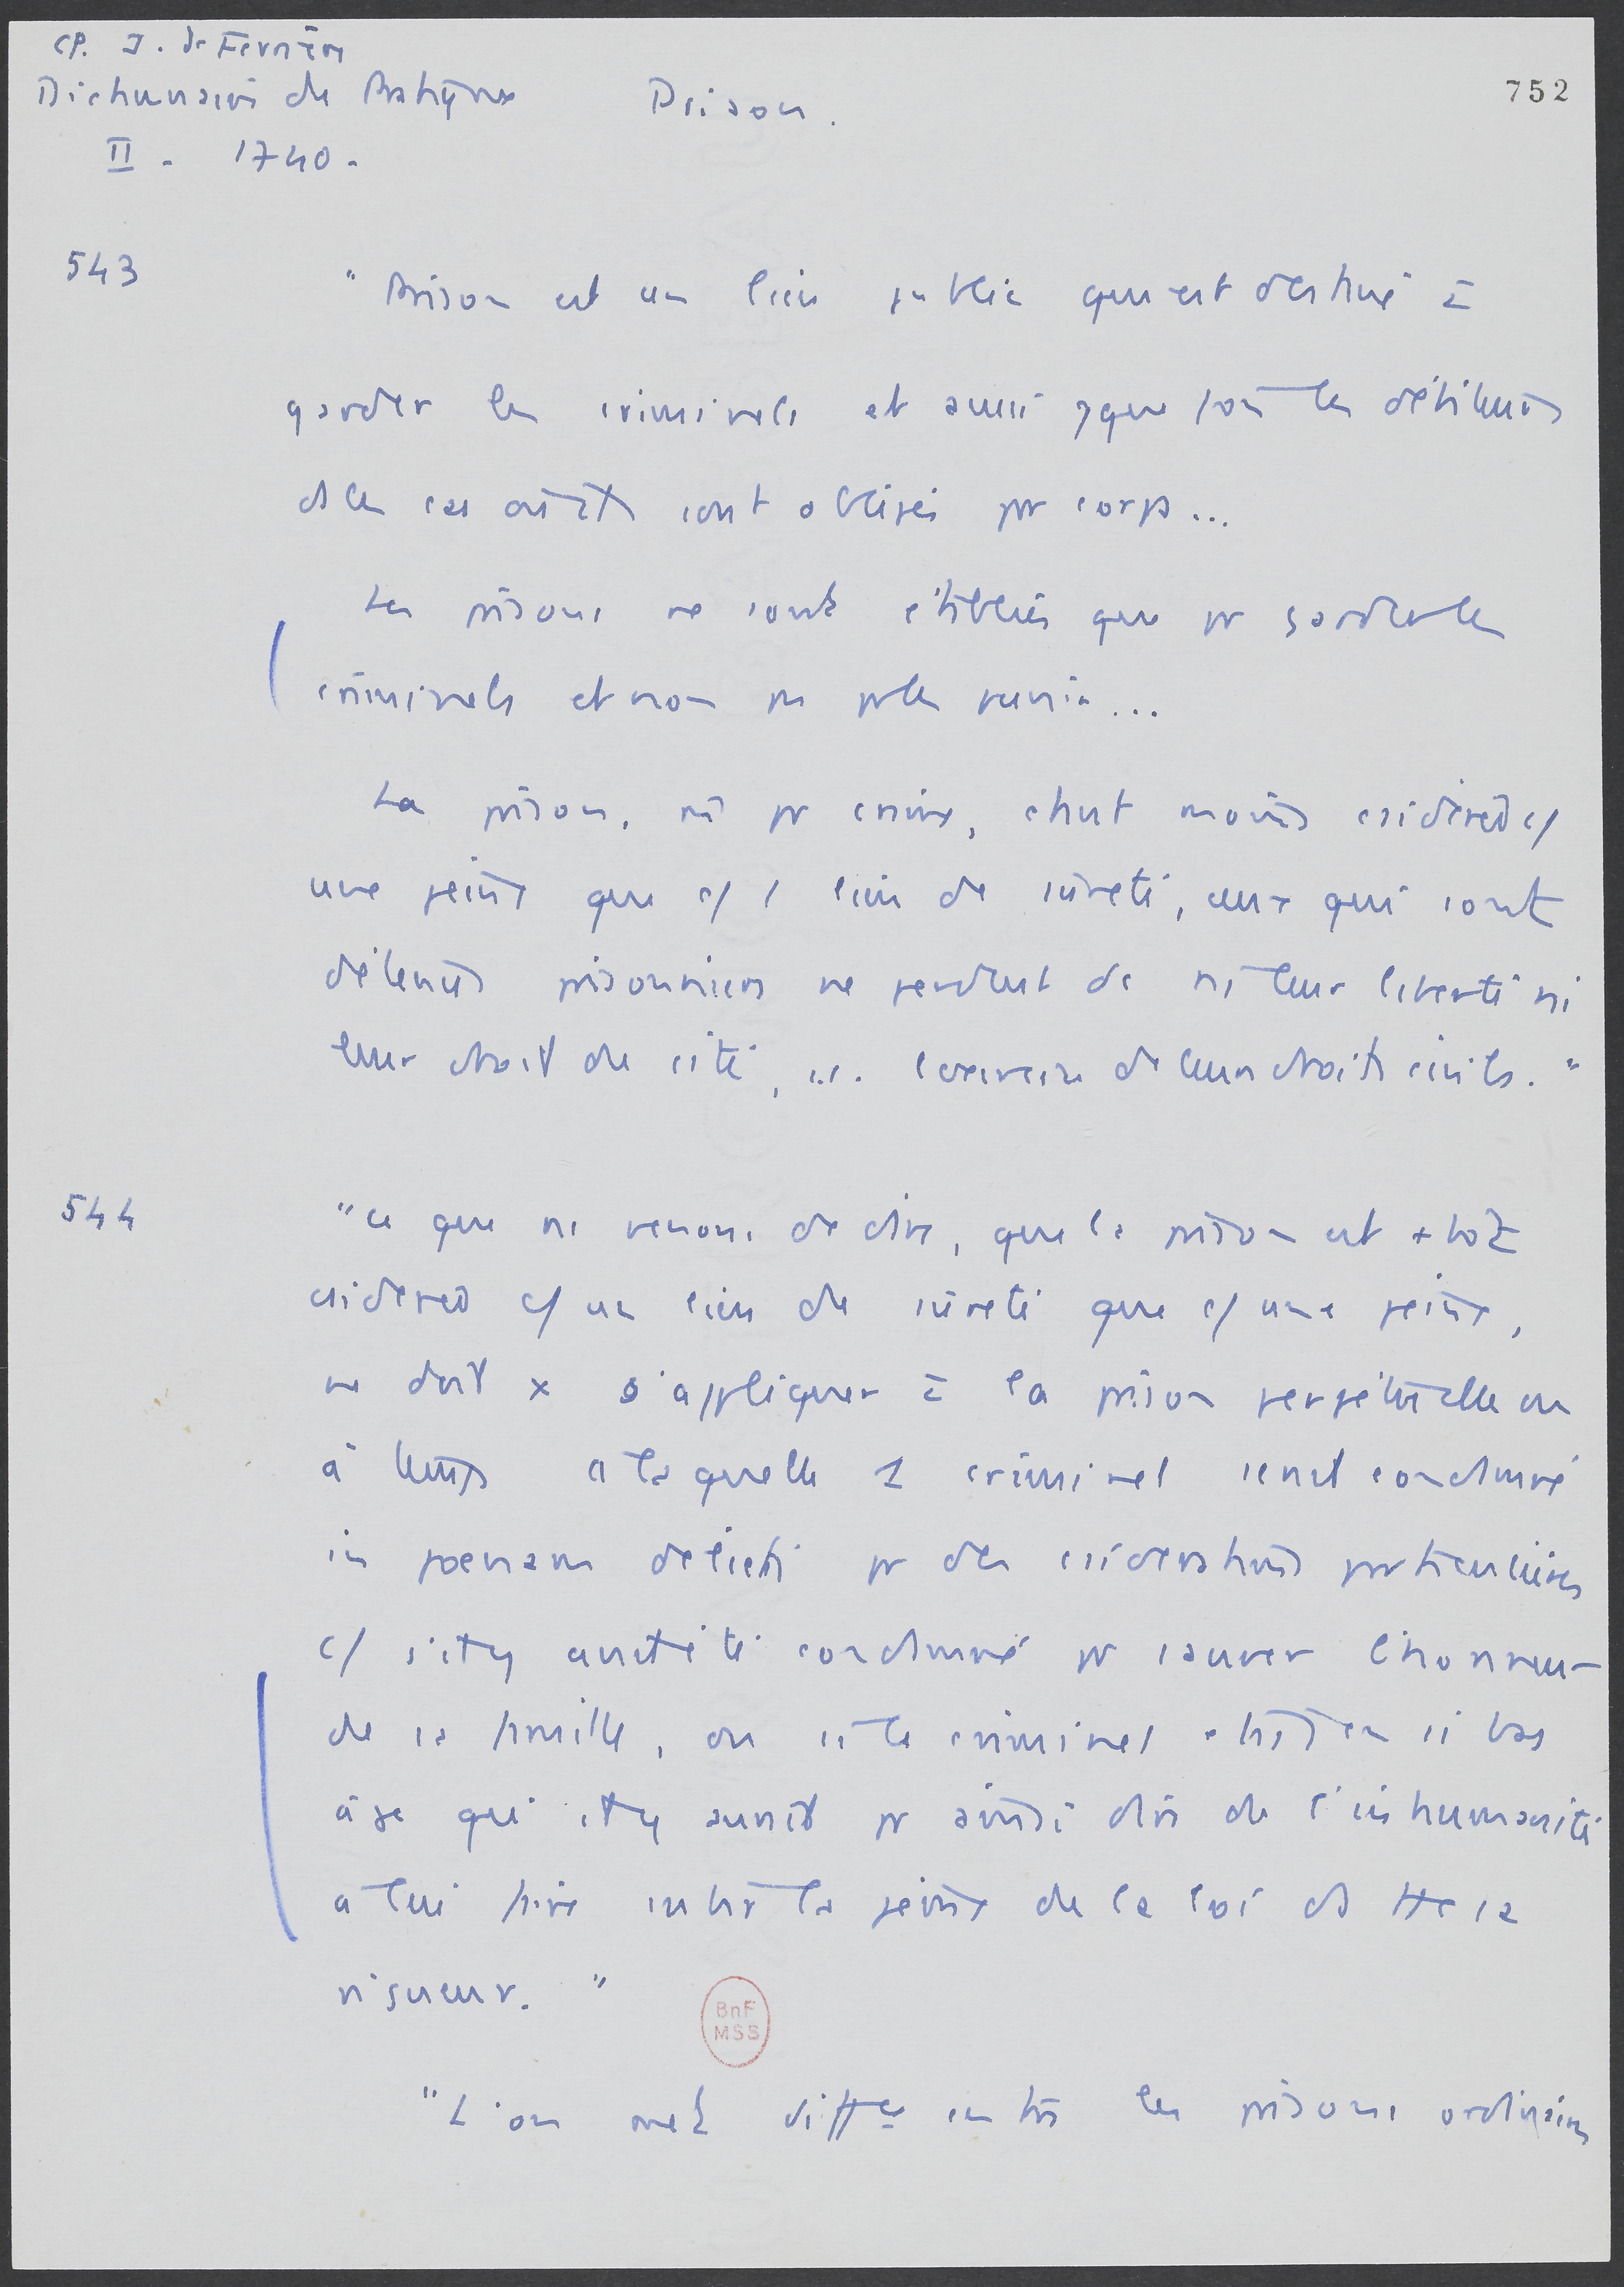 CP. J. de Ferrière
Dictionnaire de Pratique
Prison.
752
II - 1740.
543
"Prison est un lieu public qui est destiné à
garder les criminels et aussi quefois les débiteurs
ds les cas où ils sont obligés pr corps...
Les prisons ne sont établies que pr garder les
criminels et non pas pr les punir...
La prison, mê pr crime, étant moins csidérée c/
une peine que c/ 1 lieu de sûreté, ceux qui sont
détenus prisonniers ne perdent ni leur liberté ni
leur droit de cité, ... de leurs droits civils."
544
"Ce que ns venons de dire, que la prison est + tôt
csidérée c/ un lieu de sûreté que c/ une peine,
ne doit x s'appliquer à la prison perpétuelle ou
à temps à laquelle 1 criminel serait condamné
in poenam delicti pr des csidérations particulières
c/ s'il y avait été condamné pr sauver l'honneur
de sa famille, ou si le criminel était en si bas
âge qu'il y aurait pr ainsi dire de l'inhumanité
à lui faire subir la peine de la loi ds tte sa
rigueur."
BnF
MSS
"L'on met diffce entre les prisons ordinaires